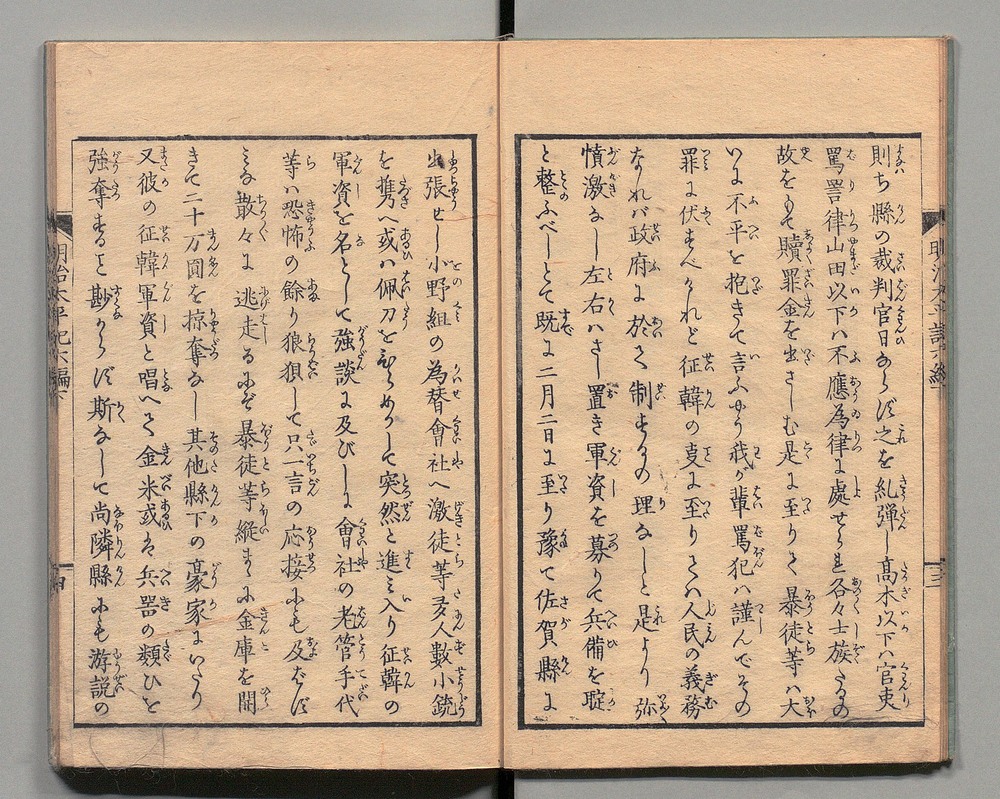 則ち縣の裁判官日あらず之を糺彈し高木以下ハ官吏
罵詈律山田以下ハ不應為律に處せられ各々士族たるの
故をもて贖罪金を出さしむ是に至りて暴徒等ハ大
いに不平を抱きて言ふやう我が輩罵犯ハ謹んでその
罪に伏すべけれど征韓の事に至りてハ人民の義務
なれバ政府に於て制するの理なしと是より弥
憤激なし左右ハさし置き軍資を募りて兵備を
と整ふべしとて既に二月二日に至り豫て佐賀縣に
出張せし小野組の為替會社へ激徒等多人數小銃
を携へ或ハ佩刀をひらめかして突然と進み入り征韓の
軍資を名として強談に及びしに會社の老管手代
等ハ恐怖の餘り狼狽して只一言の応接にも及ばず
みな散々に逃走るにぞ暴徒等縱まゝに金庫を開
きて二十万圓を掠奪なし其他縣下の豪家にいたり
又彼の征韓軍資と唱へて金米或は兵器の類ひを
強奪すること尠からず斯なして尚隣縣にも游説の
明治太平記六編
三
四